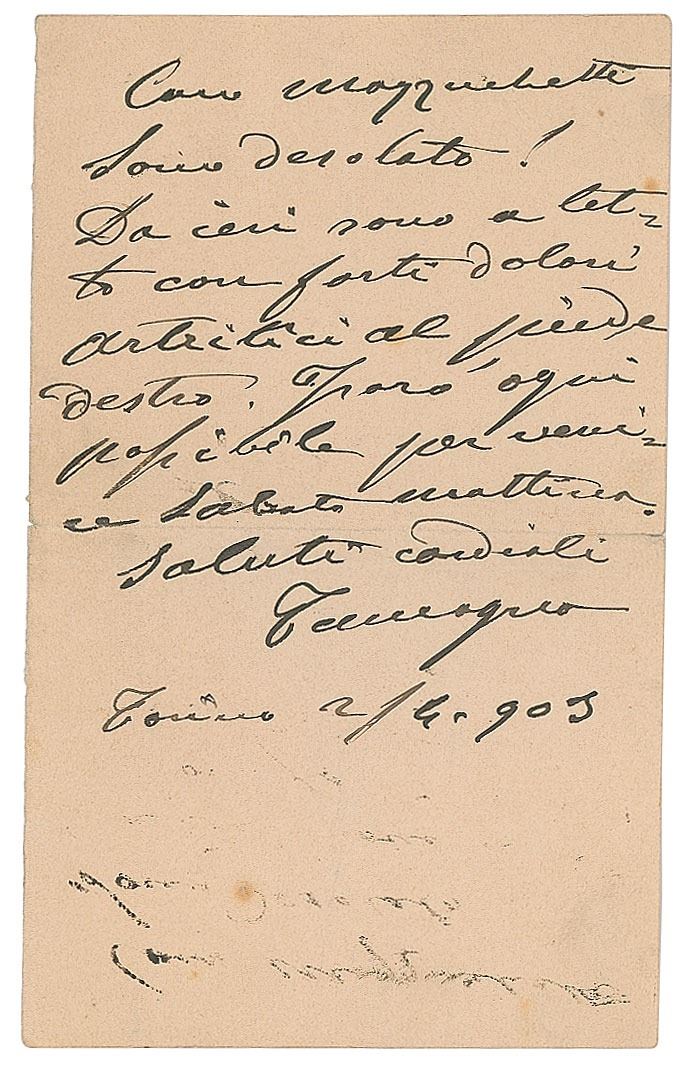 Caro Mozzuchetti
Sono desolato!
Da ieri sono a let-
to con forti dolori
artritici al piede
destro. Farò ogni
possibile per veni-
re Sabato mattina.
Saluti cordiali
Tamagno
Torino 2/4. 903